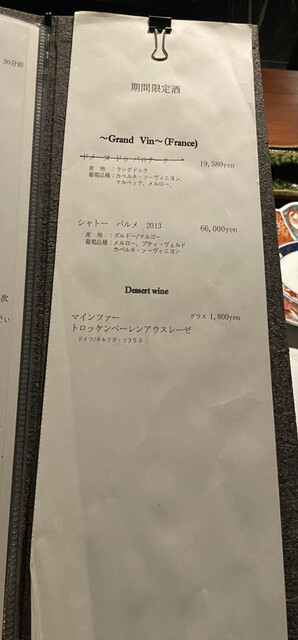 30分前
期間限定酒
～Grand Vin～(France)
ドメーヌ ドゥ バロナーク 19,580yen
産 地 : ラングドック
葡萄品種 : カベルネ・ソーヴィニヨン、
マルベック、メルロー、
シャトー パルメ 2013 66,000yen
産 地 : ボルドー/マルゴー
葡萄品種 : メルロー、プティ・ヴェルド
カベルネ・ソーヴィニヨン
Dessert wine
マインツァー グラス 1,800yen
トロッケンベーレンアウスレーゼ
ドイツ/オルテガ・ソラリス
次